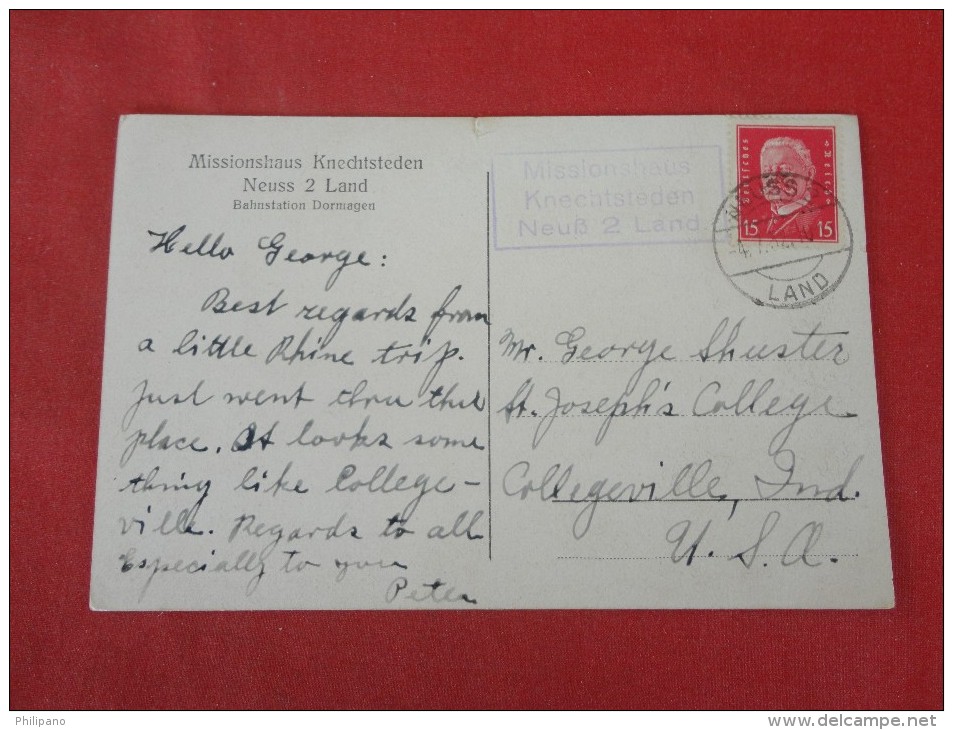 Missionshaus Knechtsteden
Neuss 2 Land
Bahnstation Dormagen
Hello George:
Best regards from
a little Rhine trip.
Just went thru this
place. It looks some
thing like College-
ville. Regards to all
Especially to you
Peter
Missionshaus
Knechtsteden
Neuß 2 Land
15 15
NEUSS
LAND
Mr. George Shuster
St. Joseph's College
Collegeville, Ind.
U. S. A.
Philipano
www.delcampe.net